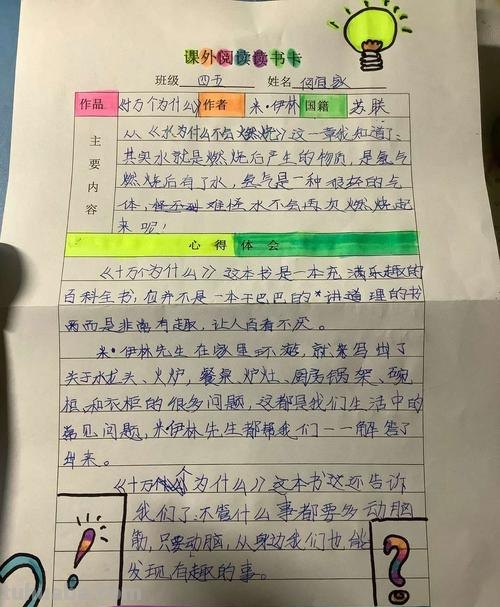 课外阅读读书卡
班级 四五 姓名
作品 《十万个为什么》 作者 米·伊林 国籍 苏联
主要内容
从《水为什么不会燃烧》这一章我知道了、
其实水就是燃烧后产生的物质，是氢气
燃烧后有了水，氢气是一种很轻的气
体，难怪水不会再次燃烧起
来呢！
心得体会
《十万个为什么？》这本书是一本充满乐趣的
百科全书，但并不是一本干巴巴的讲道理的书
而是非常有趣，让人百看不厌。
米·伊林先生在家里环游，就来写出了
关于水龙头、火炉，餐桌炉灶、厨房锅架、碗
柜和衣柜的很多问题，这都是我们生活中的
常见问题，米伊林先生都帮我们一一解答了
出来。
《十万个为什么》这本书还告诉
我们了：不管什么事都要多动脑
筋，只要动脑，从身边我们也能
发现有趣的事。